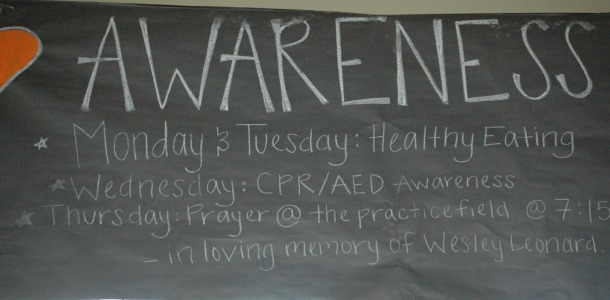 AWARENESS
* Monday & Tuesday: Healthy Eating
* Wednesday: CPR/AED Awareness
* Thursday: Prayer @ the practice field @ 7:15
- in loving memory of Wesley Leonard.